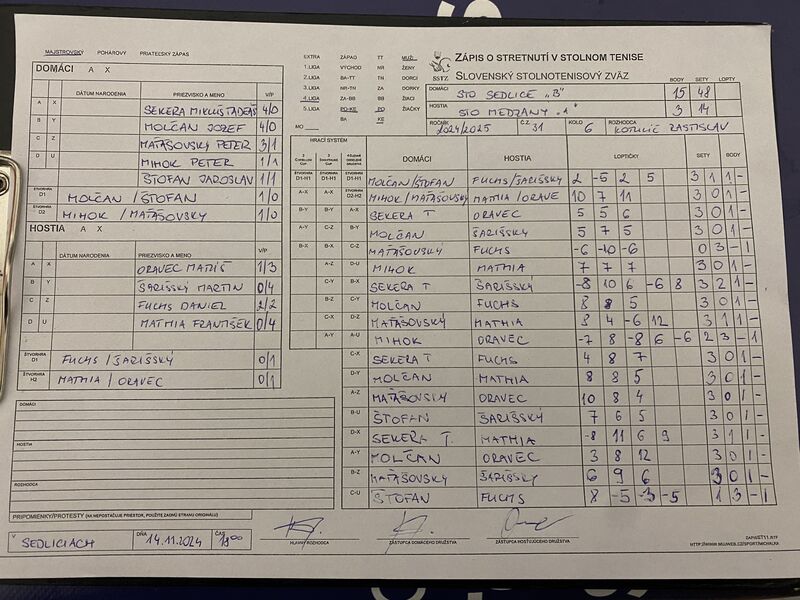 MAJSTROVSKÝ POHAROVÝ PRIATEĽSKÝ ZÁPAS
DOMÁCI A X
DÁTUM NARODENIA PRIEZVISKO A MENO V/P
A X SEKERA MIKULÁŠ TADEÁŠ 4/0
B Y MOLČAN JOZEF 4/0
C Z MAŤAŠOVSKÝ PETER 3/1
D U MIHOK PETER 1/1
ŠTOFAN JAROSLAV 1/1
ŠTVORHRA D1 MOLČAN / ŠTOFAN 1/0
ŠTVORHRA D2 MIHOK / MAŤAŠOVSKY 1/0
HOSTIA A X
DÁTUM NARODENIA PRIEZVISKO A MENO V/P
A X ORAVEC MATÚŠ 1/3
B Y ŠARIŠSKÝ MARTIN 0/4
C Z FUCHS DANIEL 2/2
D U MATHIA FRANTIŠEK 0/4
ŠTVORHRA D1 FUCHS / ŠARIŠSKÝ 0/1
ŠTVORHRA H2 MATHIA / ORAVEC 0/1
DOMÁCI
HOSTIA
ROZHODCA
PRIPOMIENKY/PROTESTY (NA NEPOSTAČUJE PRIESTOR, POUŽITE ZADNÚ STRANU ORIGINÁLU)
V SEDLICIACH DŇA 14.11.2024 ČAS 18:00
EXTRA ZÁPAD TT MUŽI
1.LIGA VÝCHOD NR ŽENY
2.LIGA BA-TT TN DORCI
3.LIGA NR-TN ZA DORKY
4.LIGA ZA-BB BB ŽIACI
5.LIGA PO-KE PO ŽIAČKY
BA KE
MO
SSTZ
ZÁPIS O STRETNUTÍ V STOLNOM TENISE
SLOVENSKÝ STOLNOTENISOVÝ ZVÄZ
BODY SETY LOPTY
DOMÁCI STO SEDLICE „B" 15 48
HOSTIA STO MEDZANY "A" 3 14
ROČNÍK 2024/2025 Č.Z. 31 KOLO 6 ROZHODCA RASTISLAV
HRACÍ SYSTÉM
DOMÁCI HOSTIA LOPTIČKY SETY BODY
D1-H1 D1-H1 D1-H1 MOLČAN/ŠTOFAN FUCHS/ŠARIŠSKÝ 2 -5 2 5 3 1 1 -
A-X A-X D2-H2 MIHOK/MAŤAŠOVSKÝ MATHIA/ORAVE 10 7 11 3 0 1 -
B-Y B-Y A-X SEKERA T ORAVEC 5 5 6 3 0 1 -
A-Y C-Z B-Y MOLČAN ŠARIŠSKÝ 5 7 5 3 0 1 -
B-X B-X C-Z MAŤAŠOVSKÝ FUCHS -6 -10 -6 0 3 - 1
A-Z D-U MIHOK MATHIA 7 7 7 3 0 1 -
C-Y B-X SEKERA T ŠARIŠSKÝ -8 10 6 -6 8 3 2 1 -
B-Z C-Y MOLČAN FUCHS 8 8 5 3 0 1 -
C-X D-Z MAŤAŠOVSKÝ MATHIA 8 4 -6 12 3 1 1 -
A-Y A-U MIHOK ORAVEC -7 8 -8 6 -6 2 3 - 1
C-X SEKERA T FUCHS 4 8 7 3 0 1 -
D-Y MOLČAN MATHIA 8 8 5 3 0 1 -
A-Z MAŤAŠOVSKÝ ORAVEC 10 8 4 3 0 1 -
B-U ŠTOFAN ŠARIŠSKÝ 7 6 5 3 0 1 -
D-X SEKERA T. MATHIA -8 11 6 9 3 1 1 -
A-Y MOLČAN ORAVEC 3 8 12 3 0 1 -
B-Z MAŤAŠOVSKY ŠARIŠSKY 6 9 6 3 0 1 -
C-U ŠTOFAN FUCHS 8 -5 -3 -5 1 3 - 1
HLAVNÝ ROZHODCA ZÁSTUPCA DOMÁCEHO DRUŽSTVA ZÁSTUPCA HOSŤUJÚCEHO DRUŽSTVA
ZAPASST11.RTF
HTTP://WWW.MUJWEB.CZ/SPORT/MICHALKA